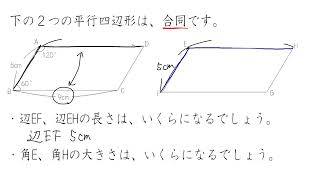 下の２つの平行四辺形は、合同です。
A D H
120°
5cm 5cm
60°
B C F
9cm
・辺EF、辺EHの長さは、いくらになるでしょう。
辺EF 5cm
・角E、角Hの大きさは、いくらになるでしょう。